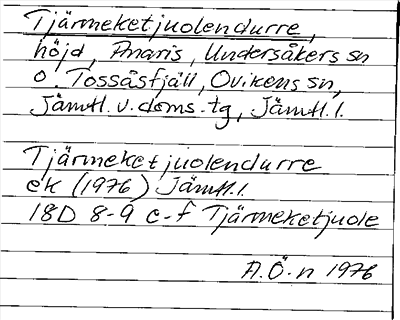 Tjärmeketjuolendurre,
höjd, Anaris, Undersåkers sn
o. Tossåsfjäll, Ovikens sn,
Jämtl. v. doms. tg, Jämtl. l.
Tjärmeketjuolendurre
ek (1976) Jämtl. l.
18D 8-9 c-f Tjärmeketjuole
A.Ö-n 1976